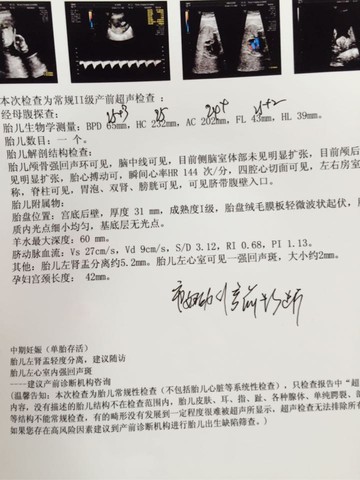 本次检查为常规II级产前超声检查：
经母腹探查：
胎儿生物学测量：BPD 65mm，HC 232mm，AC 202mm，FL 43mm，HL 39mm。
胎儿数目：一 个。
胎儿解剖结构检查：
胎儿颅骨强回声环可见，脑中线可见，目前侧脑室体部未见明显扩张，目前颅后
见明显扩张，胎心搏动可，瞬间心率HR 144 次/分，四腔心切面可见，左右房室
称，脊柱可见，胃泡，双肾、膀胱可见，可见脐带腹壁入口。
胎儿附属物：
胎盘位置：宫底后壁，厚度 31 mm，成熟度I级，胎盘绒毛膜板轻微波状起伏，
质内光点细小均匀，基底层无光点。
羊水最大深度：60 mm。
脐动脉血流：Vs 27cm/s，Vd 9cm/s，S/D 3.12，RI 0.68，PI 1.13。
其他：胎儿左肾盂分离约5.2mm。胎儿左心室可见一强回声斑，大小约2mm。
孕妇宫颈长度： 42mm。
中期妊娠（单胎存活）
胎儿左肾盂轻度分离，建议随访
胎儿左心室内强回声斑
----建议产前诊断机构咨询
(温馨告知：本次检查为胎儿常规性检查(不包括胎儿心脏等系统性检查)，只检查报告中“超
内容，没有描述的胎儿结构不在检查范围内，胎儿皮肤、耳、指、趾、各种腺体、单纯腭裂、
等结构不能常规检查，有的畸形没有发展到一定程度很难被超声所显示，超声检查无法排除所有
如果您存在高风险因素建议到产前诊断机构进行胎儿出生缺陷筛查。)